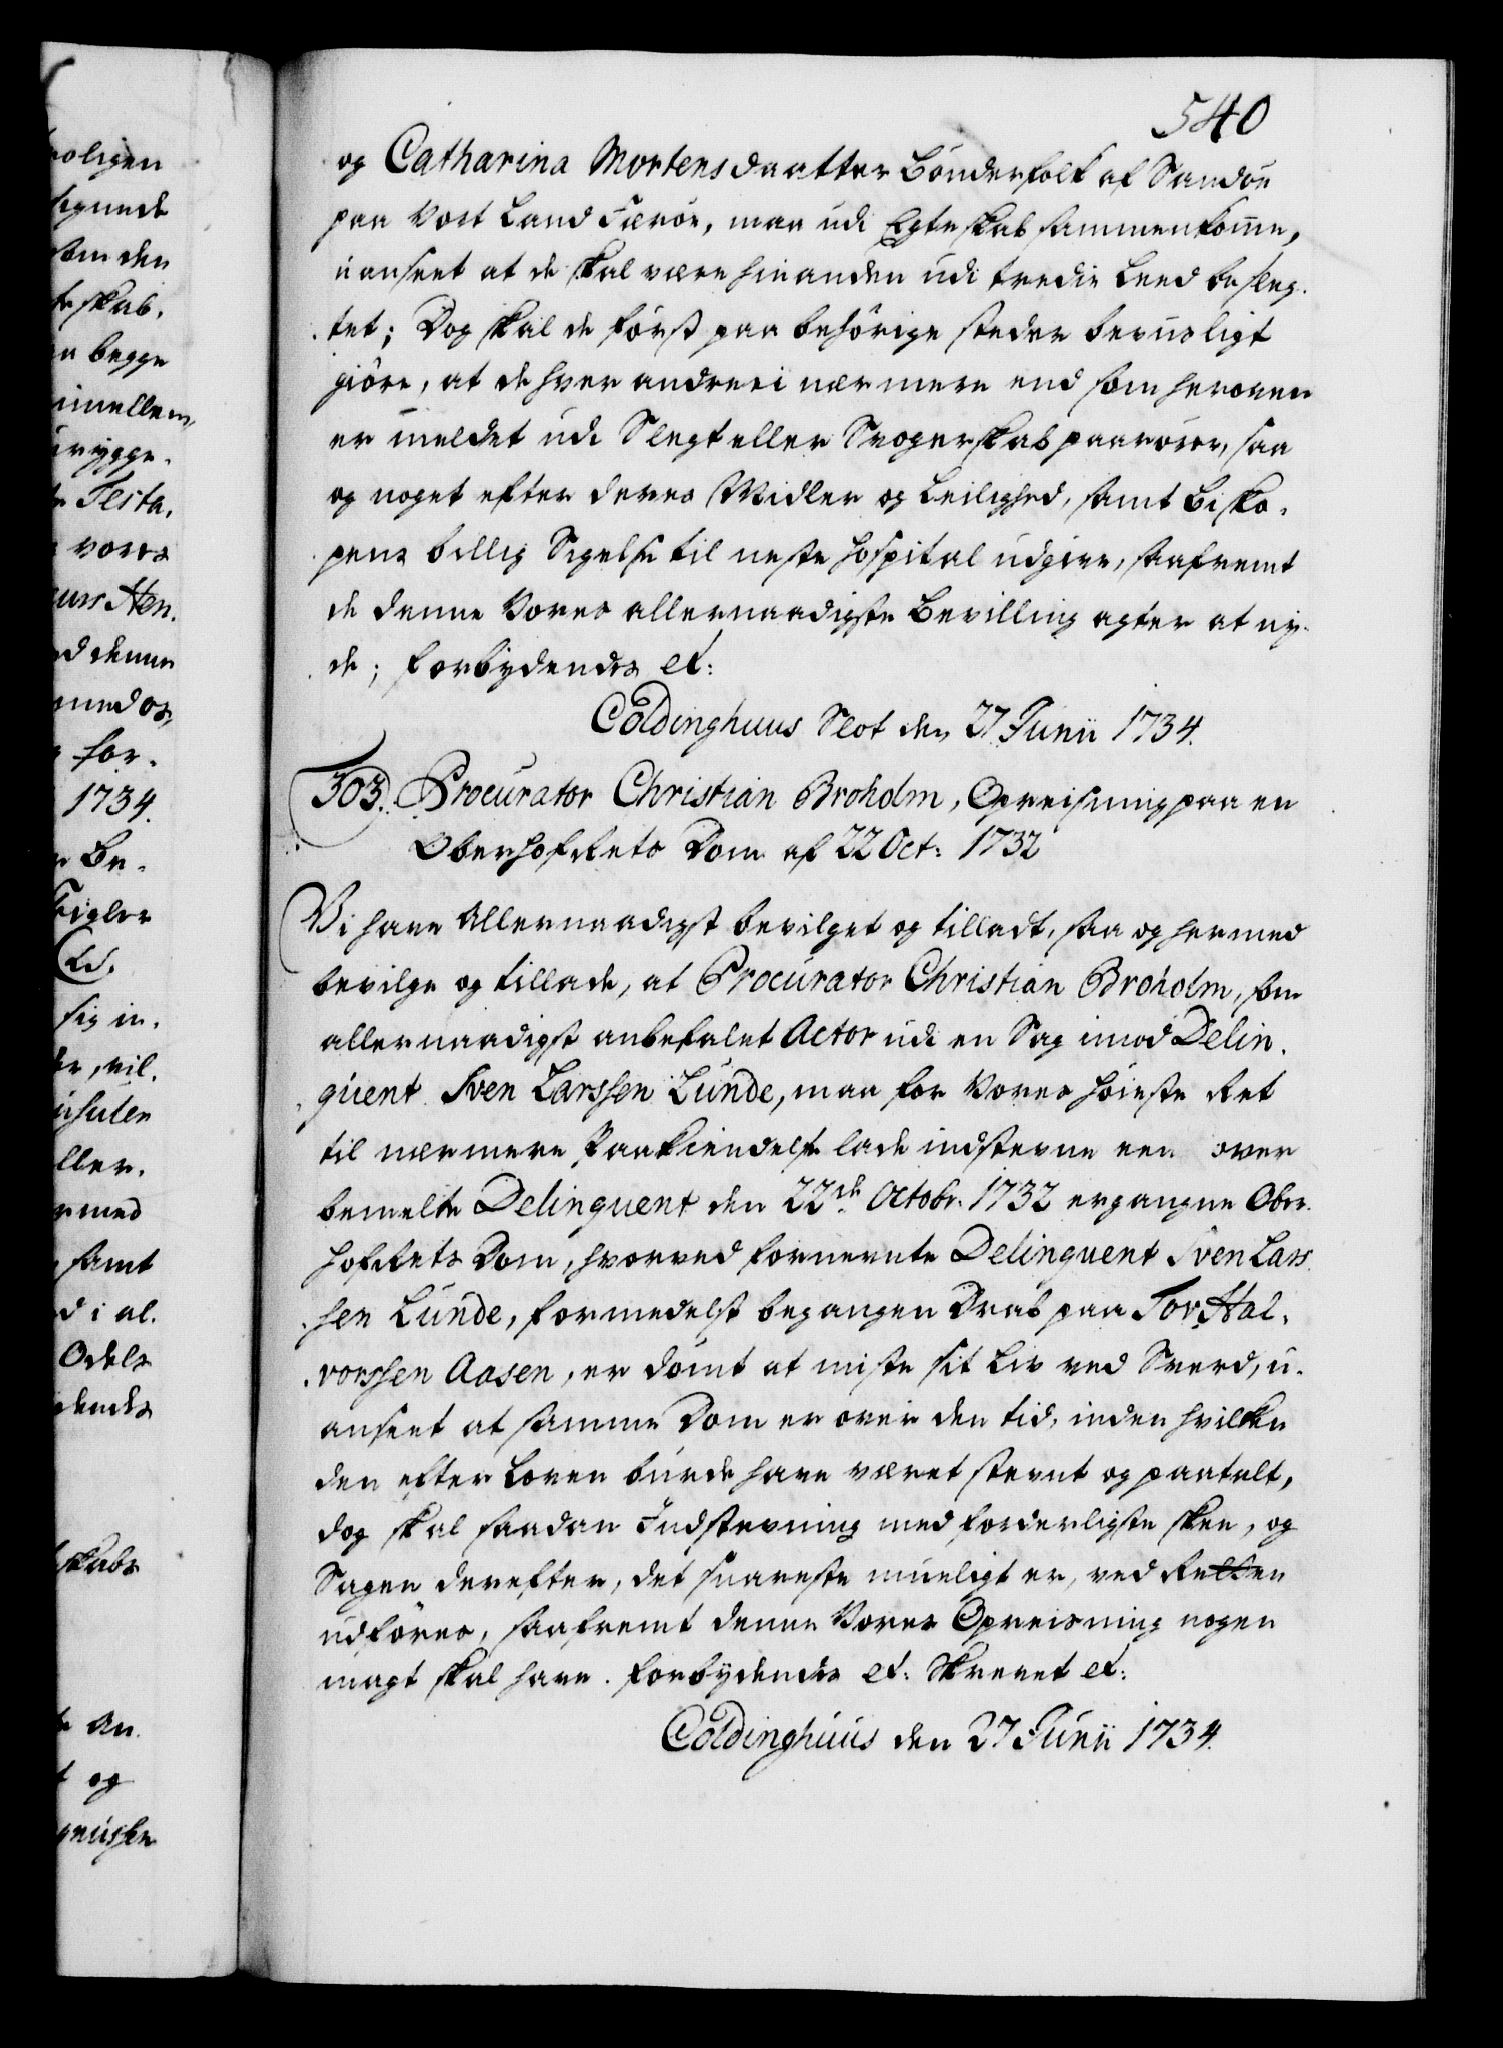 540
og Catharina Mortensdaatter Bönderfolk af Sandöe
paa Vort Land Færöe, maa udi Egteskab sammenkomme,
uanseet at de skal være hinanden udi tredie Leed besleg-
tet; Dog skal de först paa behörige steder bevisligt
giöre, at de hver andre ei nærmere end som heroven
er meldet udi Slegt eller Svogerskab paarörer, saa
og noget efter deres Midler og Leilighed, samt Bisko-
pens billig Sigelse til neste Hospital udgive, saafremt
de denne Vores allernaadigste Bevilling agter at ny-
de; forbydendes etc:
Coldinghuus Slot den 27 Junii 1734.
303. Procurator Christian Broholm, Opreisning paa en
OberhofRets Dom af 22 Oct: 1732
Vi have Allernaadigst bevilget og tilladt, saa og hermed
bevilge og tillade, at Procurator Christian Broholm, som
allernaadigst anbefalet Actor udi en Sag imod Delin-
quent Sven Larssen Lunde, maa for Vores Höieste Ret
til nærmere Paakiendelse lade indstevne een over
bemelte Delinquent den 22de Octobr: 1732 ergangne Ober-
hofRets Dom, hvorved fornevnte Delinquent Sven Lars-
sen Lunde, formedelst begangen Drab paa Tor Hal-
vorssen Aasen, er dömt at miste sit Liv ved Sverd, u-
anseet at samme Dom er over den tid, inden hvilken
den efter Loven burde have været stevnt og paatalt,
dog skal saadan Indstevning med forderligste skee, og
Sagen derefter, det snareste mueligt er, ved Retten
udföres, saafremt denne Vores Opreisning nogen
magt skal have. forbydendes etc: Skrevet etc:
Coldinghuus den 27 Junii 1734.